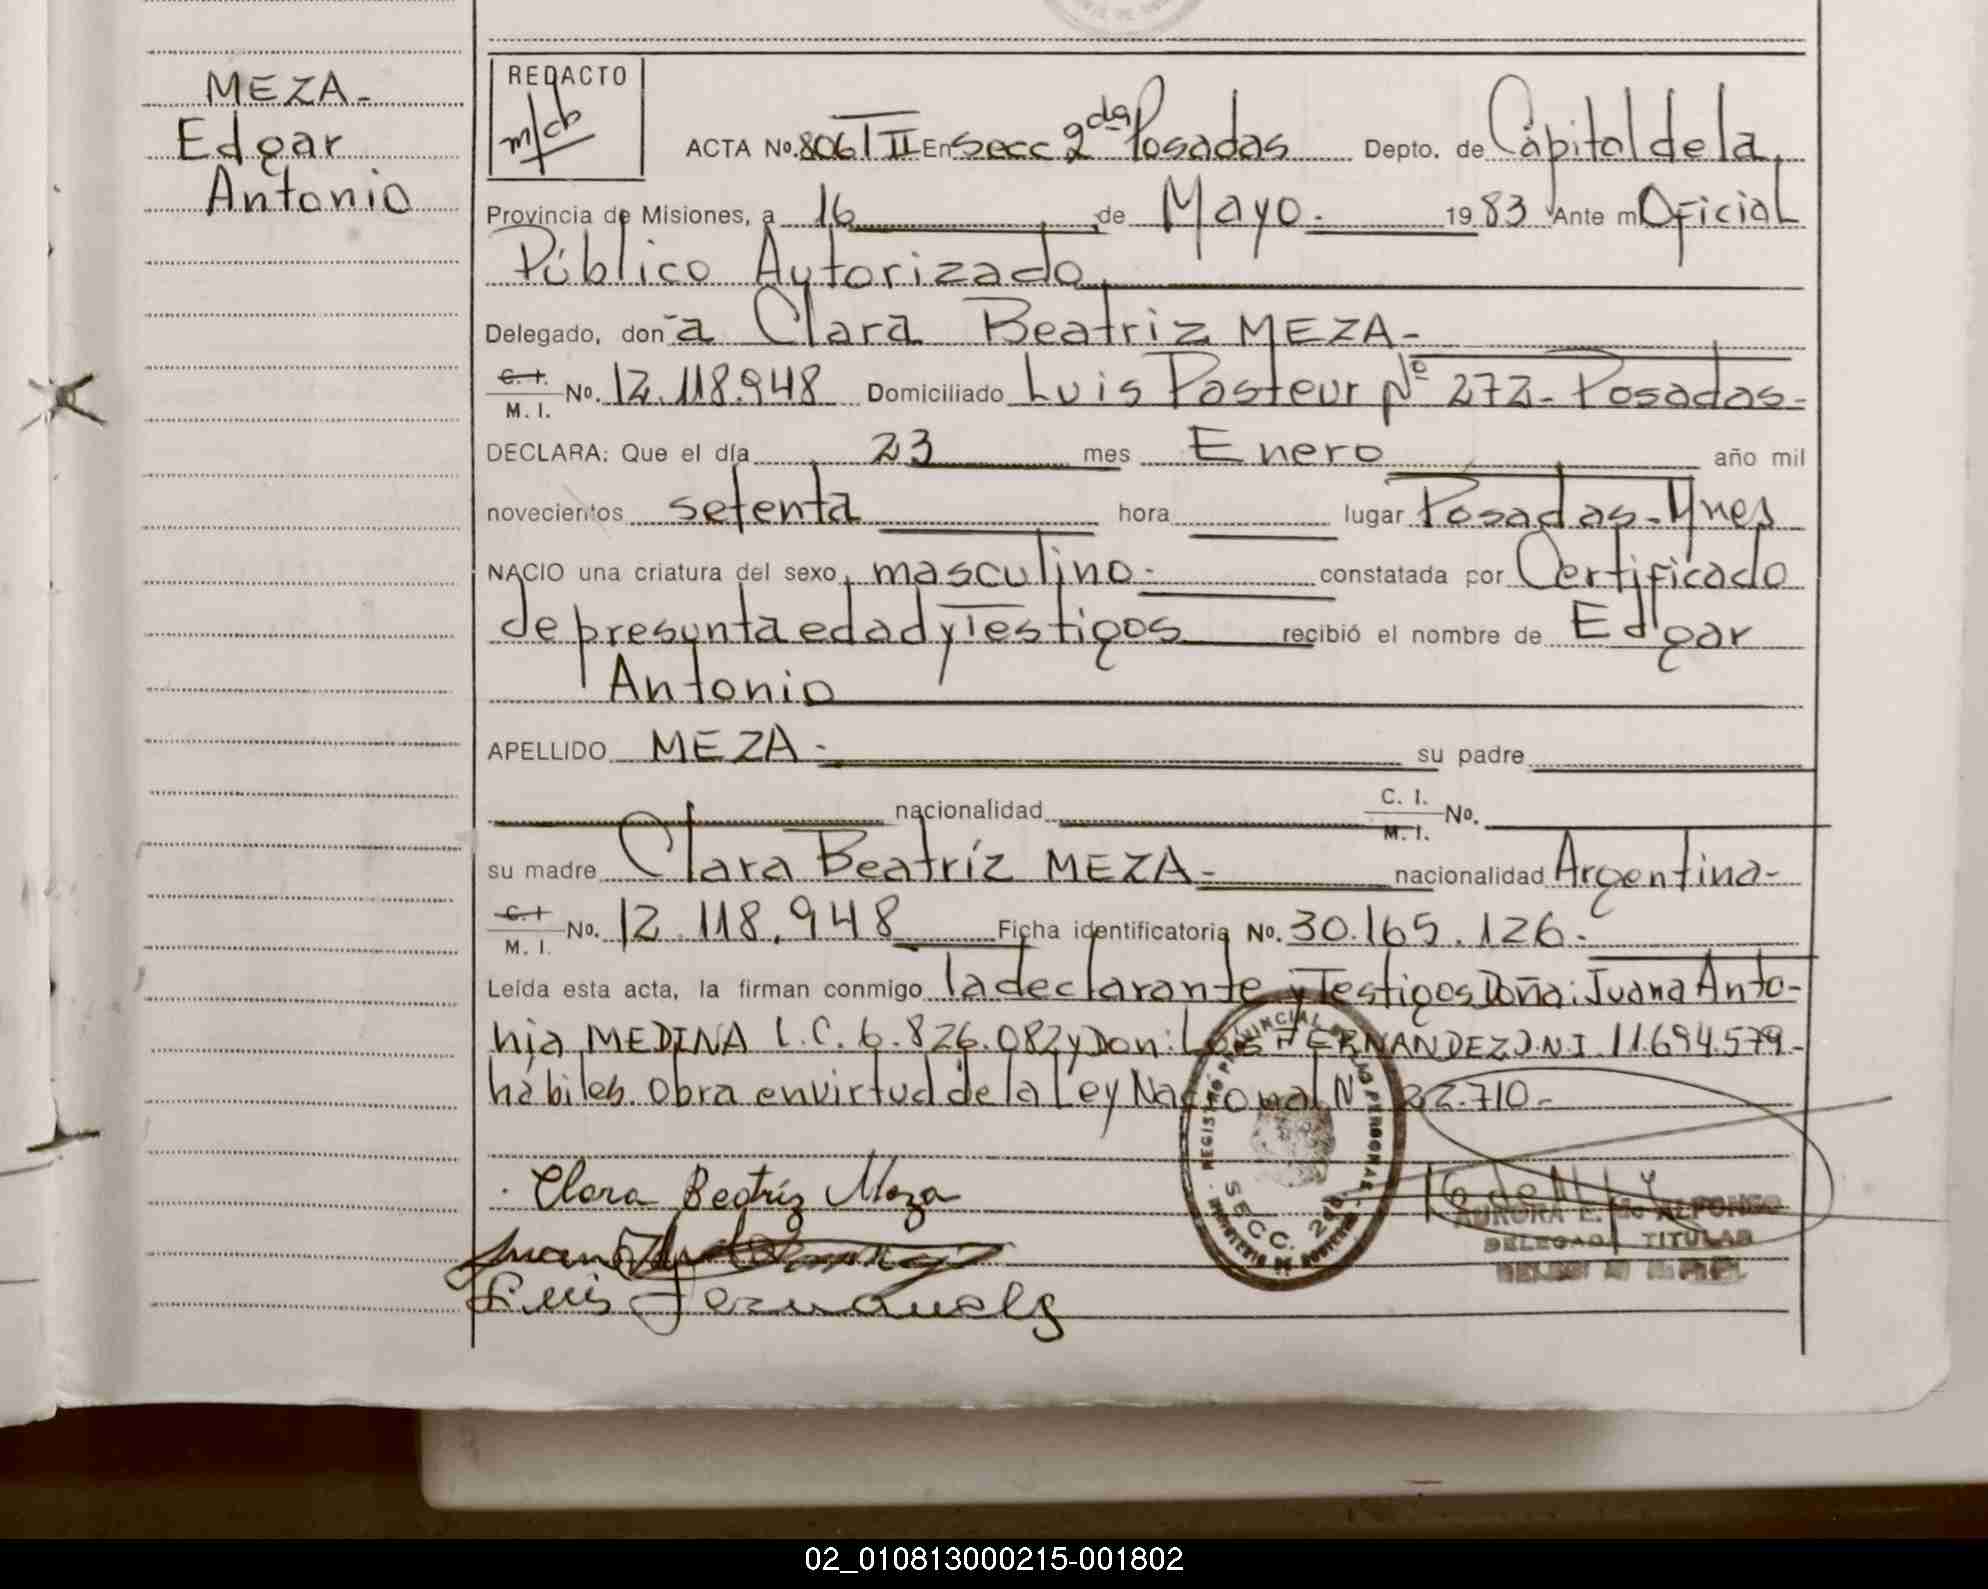 MEZA-
Edgar
Antonio
REDACTO
m/cb
ACTA No. 806 T II En Secc 2da Posadas Depto. de Capital de la
Provincia de Misiones, a 16 de Mayo. 1983 Ante mi Oficial
Público Autorizado
Delegado, don̄a Clara Beatriz MEZA-
C. I. / M. I. No. 12.118.948 Domiciliado Luis Pasteur Nº 272- Posadas-
DECLARA: Que el día 23 mes Enero año mil
novecientos setenta hora lugar Posadas-Mnes
NACIO una criatura del sexo masculino- constatada por Certificado
de presunta edad y Testigos recibió el nombre de Edgar
Antonio
APELLIDO MEZA- su padre
nacionalidad C. I. / M. I. No.
su madre Clara Beatríz MEZA- nacionalidad Argentina-
C. I. / M. I. No. 12.118.948 Ficha identificatoria No. 30.165.126.
Leída esta acta, la firman conmigo la declarante y Testigos Doña: Juana Anto-
nia MEDINA L.C. 6.826.082 y Don: Luis FERNANDEZ D.N.I 11.694.579-
hábiles. Obra en virtud de la Ley Nacional Nº 22.710-
Clara Beatríz Meza
Luis Fernandez
REGISTRO PROVINCIAL DE LAS PERSONAS
SECC. 2da
MINISTERIO DE GOBIERNO
16 de M
AURORA E. ALFONSO
DELEGADA TITULAR
02_010813000215-001802